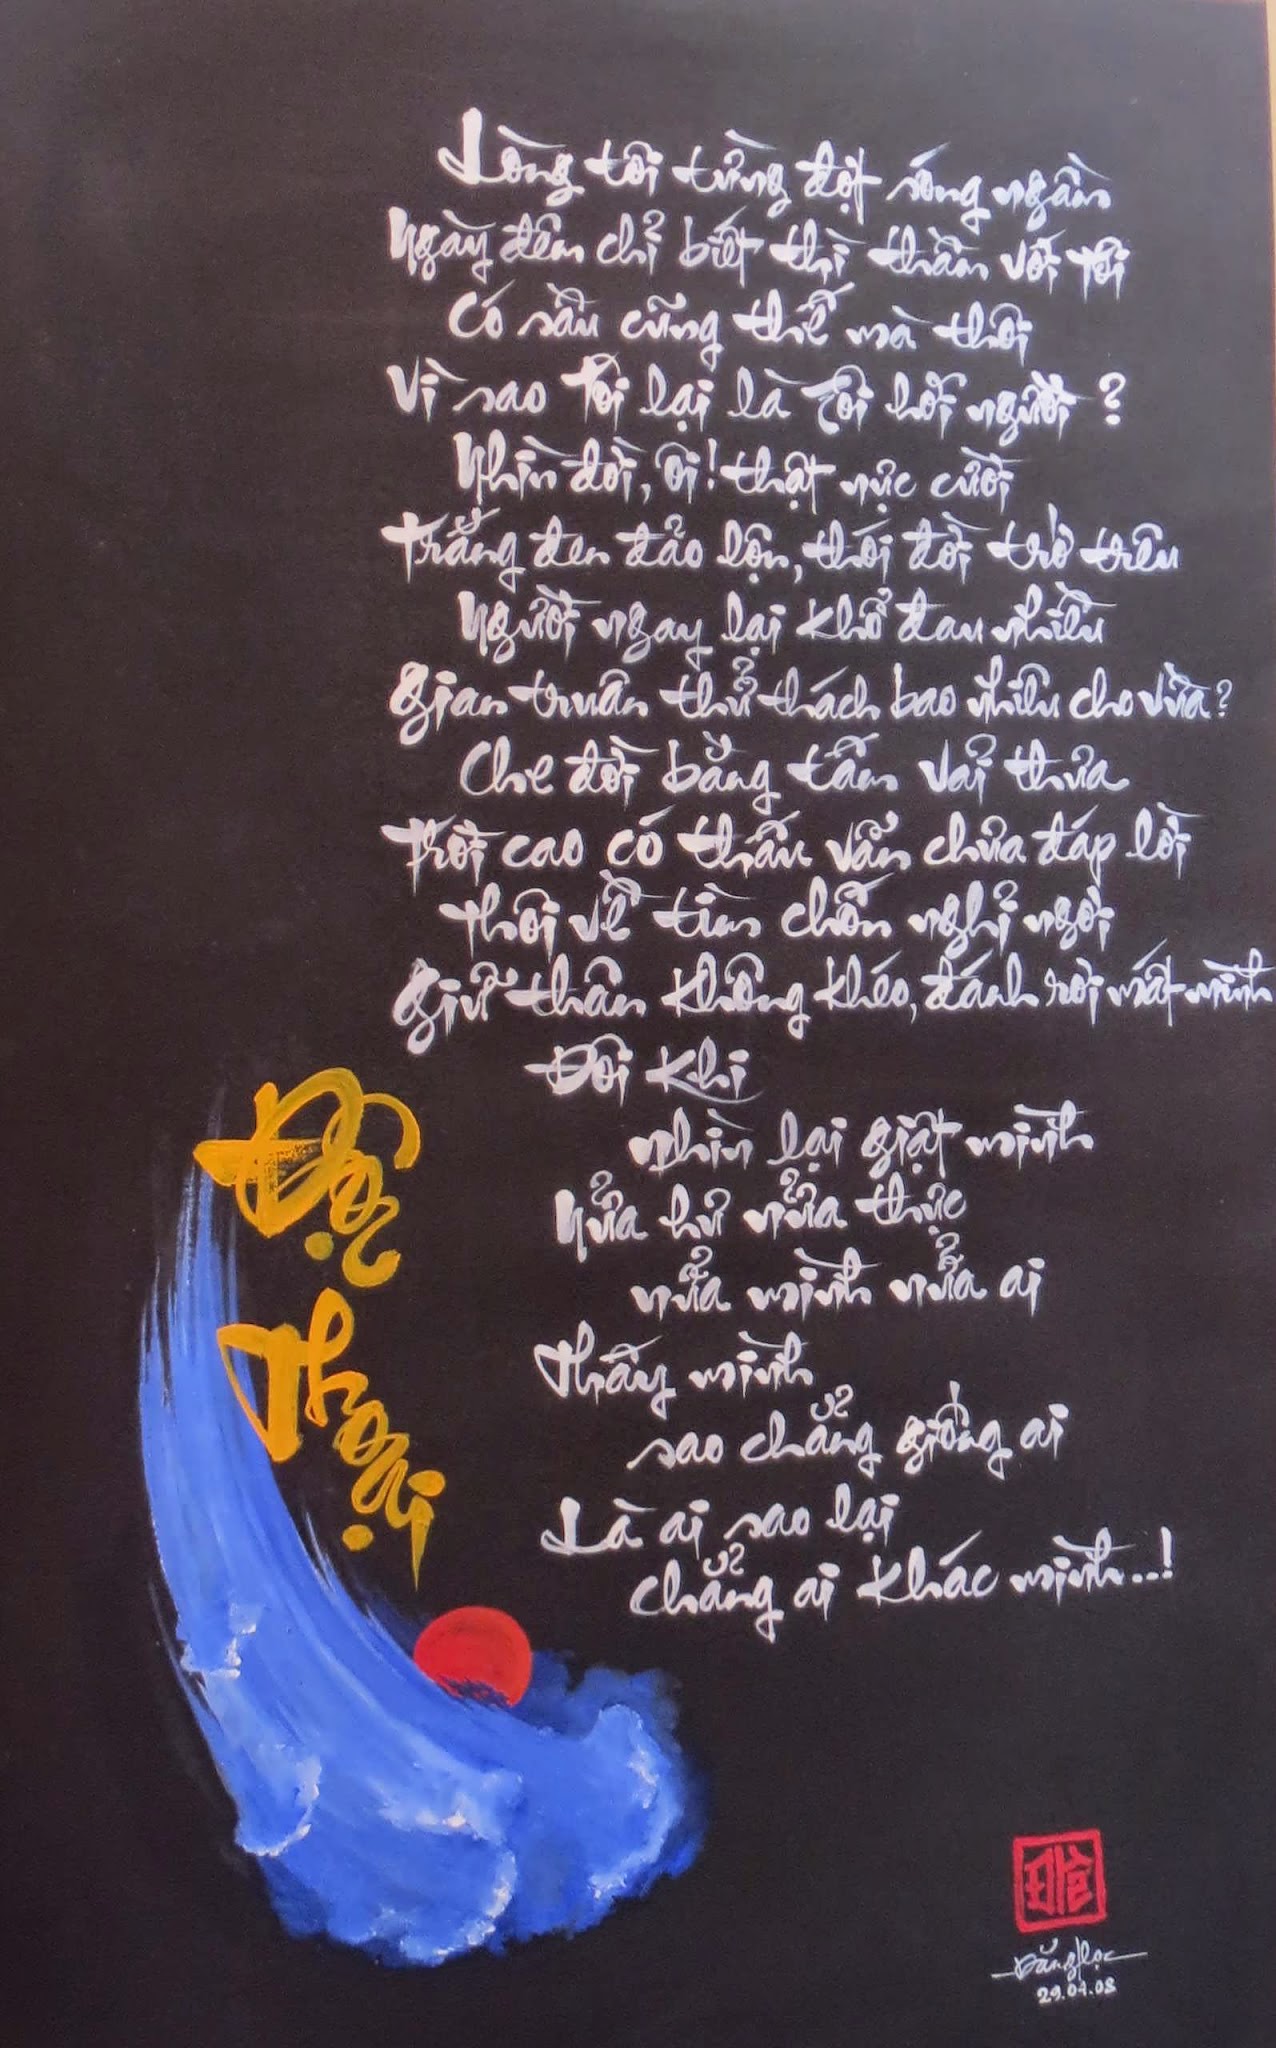 Lòng tôi từng đợt sóng ngầm
Ngày đêm chỉ biết thì thầm với tôi
Có sầu cũng thế mà thôi
Vì sao Tôi lại là Tôi hỡi người?
Nhìn đời, ôi! thật nực cười
Trắng đen đảo lộn, thói đời trớ trêu
Người ngay lại khổ đau nhiều
Gian truân thử thách bao nhiêu cho vừa?
Che đời bằng tấm vải thưa
Trời cao có thấu vẫn chưa đáp lời
Thôi về tìm chốn nghỉ ngơi
Giữ thân không khéo, đánh rơi mất mình
Đôi khi
nhìn lại giật mình
Nửa hư nửa thực
nửa mình nửa ai
Thấy mình
sao chẳng giống ai
Là ai sao lại
chẳng ai khác mình...!
Độc
Thoại
Đăng Lọc
29.04.08